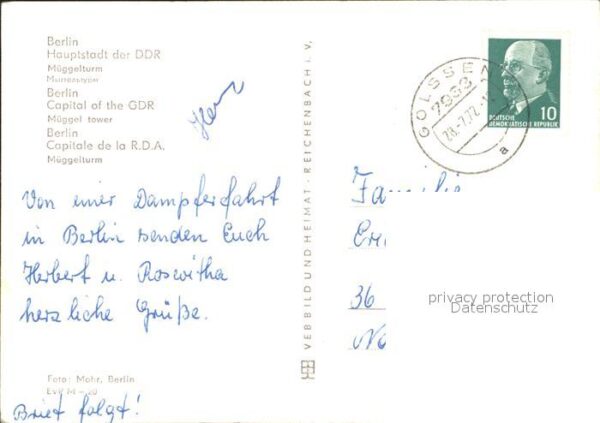 Berlin
Hauptstadt der DDR
Müggelturm
Berlin
Capital of the GDR
Müggel tower
Berlin
Capitale de la R.D.A.
Müggelturm
Von einer Dampferfahrt
in Berlin senden Euch
Herbert u. Roswitha
herzliche Grüße.
Foto: Mohr, Berlin
Brief folgt!
VEB BILD UND HEIMAT · REICHENBACH I. V.
GOLSSEN
28.-7.72
a
10
DEUTSCHE
DEMOKRATISCHE REPUBLIK
Familie
36
privacy protection
Datenschutz